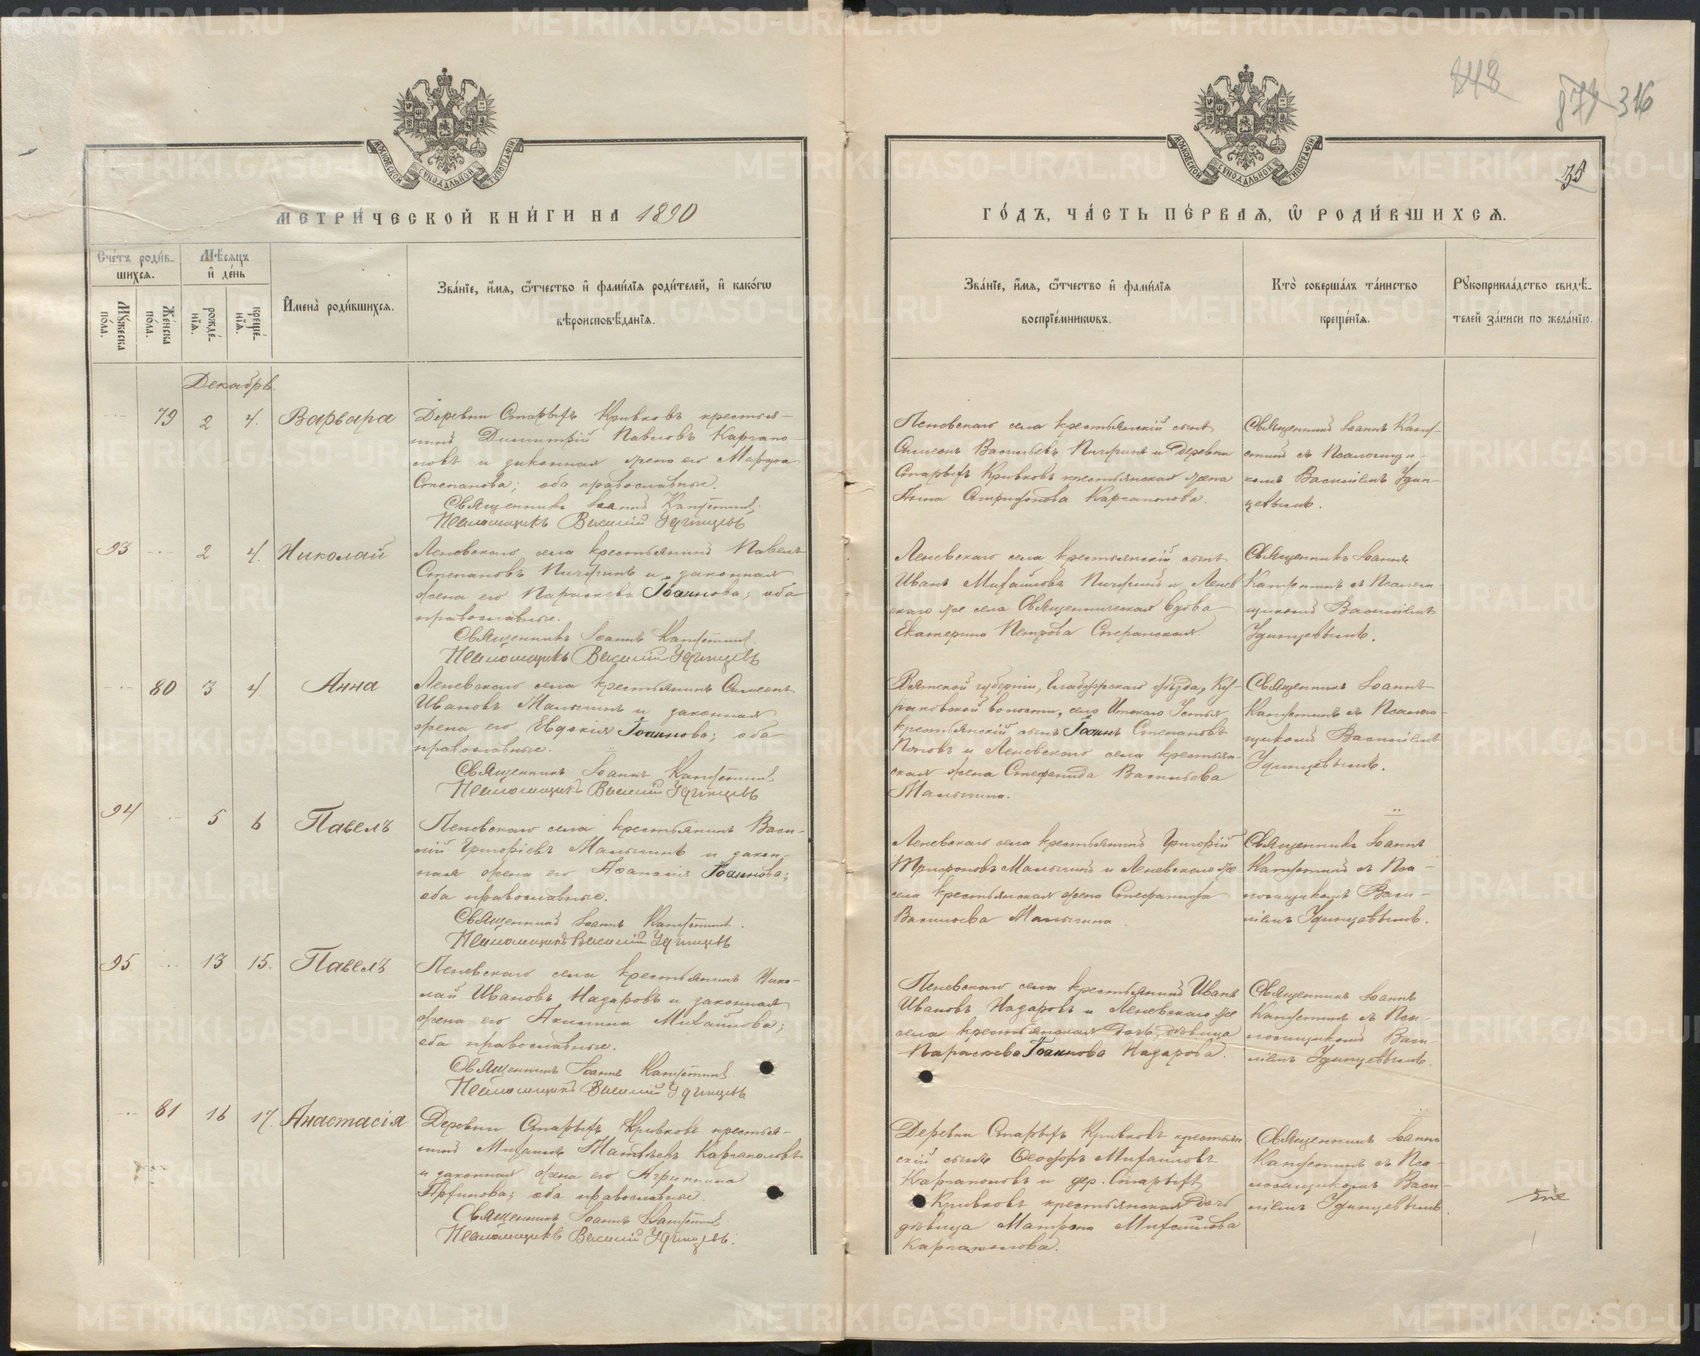 848
879 316
39
МЕТРИ́ЧЕСКОЙ КНИ́ГИ НА 1890
ГО́ДЪ, ЧА́СТЬ ПЕ́РВАЯ, Ѡ РОДИ́ВШИХСЯ.
Сче́тъ роди́в-
шихся.
Му́жеска по́ла.
Же́нска по́ла.
Мѣ́сяцъ
и де́нь
рожде́-
нія.
креще́-
нія.
Имена̀ роди́вшихся.
Зва́ніе, и́мя, о́тчество и фами́лія роди́телей, и како́гѡ
вѣроисповѣ́данія.
Зва́ніе, и́мя, о́тчество и фами́лія
воспріе́мниковъ.
Кто̀ соверша́лъ та́инство
креще́нія.
Рукоприкла́дство свидѣ́-
телей за́писи по жела́нію.
Декабрь
79 2 4. Варвара
Деревни Старыхъ Кривковъ крестья-
нинъ Димитрій Павловъ Каргапо-
ловъ и законная жена его Марѳа
Степанова; оба православные.
Священникъ Іоаннъ
Псаломщикъ Василій Удинцевъ
Леневскаго села крестьянскій сынъ
Симеонъ Васильевъ Пичугинъ и деревни
Старыхъ Кривковъ крестьянская жена
Анна Каргаполова.
Священникъ Іоаннъ
съ Псаломщи-
комъ Василіемъ Удин-
цевымъ.
93 2 4. Николай
Леневскаго села крестьянинъ Павелъ
Степановъ Пичугинъ и законная
жена его Параскева Іоаннова; оба
православные.
Священникъ Іоаннъ
Псаломщикъ Василій Удинцевъ
Леневскаго села крестьянскій сынъ
Иванъ Михайловъ Пичугинъ и Ленев
скаго же села Священническая вдова
Екатерина Петрова
Священникъ Іоаннъ
съ Псалом-
щикомъ Василіемъ
Удинцевымъ.
80 3 4 Анна
Леневскаго села крестьянинъ Симеонъ
Ивановъ Малыгинъ и законная
жена его Евдокія Іоаннова; оба
православные.
Священникъ Іоаннъ
Псаломщикъ Василій Удинцевъ
Вятской губерніи, Елабужскаго уѣзда, Ку-
раковской волости, село Устья
крестьянскій сынъ Іоаннъ Степановъ
Поповъ и Леневскаго села крестьян-
ская жена Стефанида Васильева
Малыгина.
Священникъ Іоаннъ
съ Псалом-
щикомъ Василіемъ
Удинцевымъ.
94 5 6 Павелъ
Леневскаго села крестьянинъ Васи-
лій Григорьевъ Малыгинъ и закон-
ная жена его Іоаннова;
оба православные.
Священникъ Іоаннъ
Псаломщикъ Василій Удинцевъ
Леневскаго села крестьянинъ Григорій
Трифоновъ Малыгинъ и Леневскаго же
села крестьянская жена Стефанида
Васильева Малыгина
Священникъ Іоаннъ
съ Пса-
ломщикомъ Васи-
ліемъ Удинцевымъ.
95 13 15. Павелъ
Леневскаго села крестьянинъ Нико-
лай Ивановъ Назаровъ и законная
жена его Акилина Михайлова;
оба православные.
Священникъ Іоаннъ
Псаломщикъ Василій Удинцевъ
Леневскаго села крестьянинъ Иванъ
Ивановъ Назаровъ и Леневскаго же
села крестьянская дочь, дѣвица
Параскева Іоаннова Назарова.
Священникъ Іоаннъ
съ Пса-
ломщикомъ Васи-
ліемъ Удинцевымъ.
81 16 17 Анастасія
Деревни Старыхъ Кривковъ крестья-
нинъ Михаилъ Матвѣевъ Каргаполовъ
и законная жена его Агриппина
оба православные.
Священникъ Іоаннъ
Псаломщикъ Василій Удинцевъ.
Деревни Старыхъ Кривковъ крестьян
скій сынъ Ѳеодоръ Михайловъ
Каргаполовъ и дер. Старыхъ
Кривковъ крестьянская дочь
дѣвица Матрона Михайлова
Каргаполова.
Священникъ Іоаннъ
съ Пса-
ломщикомъ Васи-
ліемъ Удинцевымъ.
METRIKI.GASO-URAL.RU